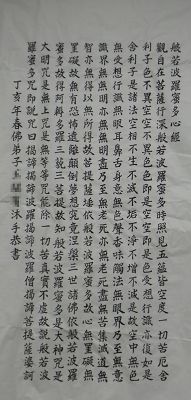 般若波羅蜜多心經
觀自在菩薩行深般若波羅蜜多時照見五蘊皆空度一切苦厄舍
利子色不異空空不異色色即是空空即是色受想行識亦復如是
舍利子是諸法空相不生不滅不垢不淨不增不減是故空中無色
無受想行識無眼耳鼻舌身意無色聲香味觸法無眼界乃至無意
識界無無明亦無無明盡乃至無老死亦無老死盡無苦集滅道無
智亦無得以無所得故菩提薩埵依般若波羅蜜多故心無罣礙無
罣礙故無有恐怖遠離顛倒夢想究竟涅槃三世諸佛依般若波羅
蜜多故得阿耨多羅三藐三菩提故知般若波羅蜜多是大神咒是
大明咒是無上咒是無等等咒能除一切苦真實不虛故說般若波
羅蜜多咒即說咒曰揭諦揭諦波羅揭諦波羅僧揭諦菩提薩婆訶
丁亥年春佛弟子沐手恭書